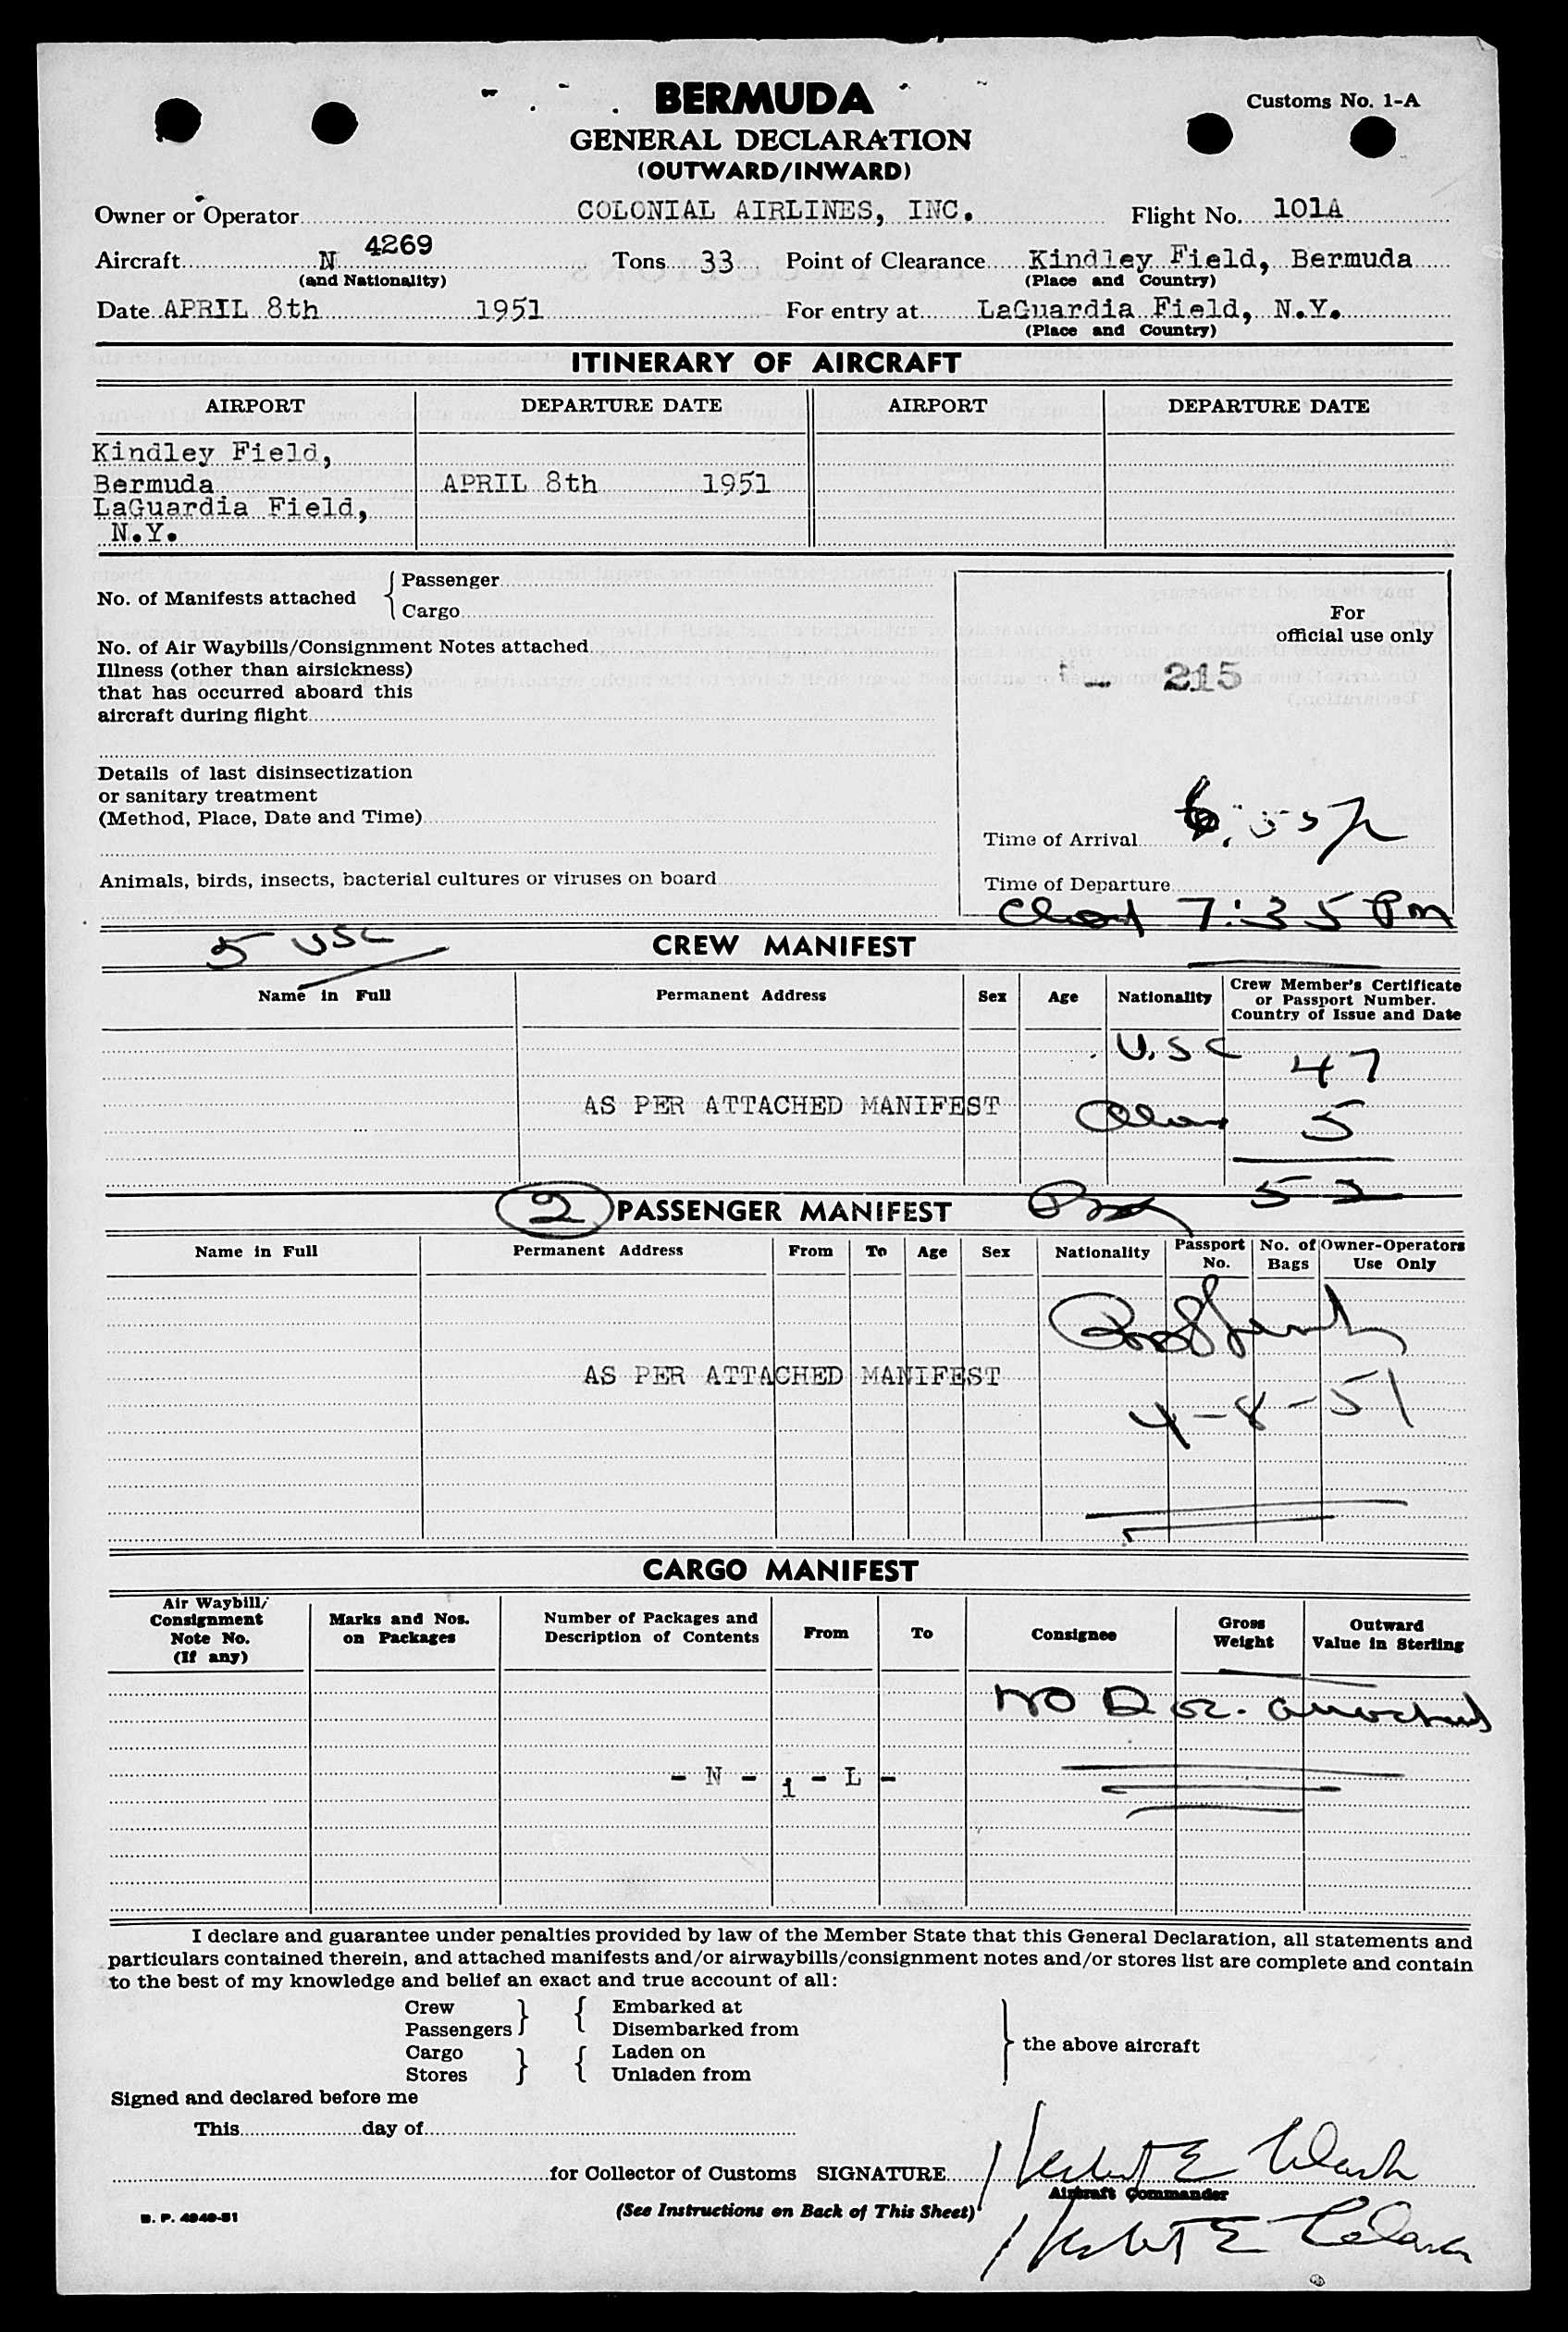 BERMUDA
Customs No. 1-A
GENERAL DECLARATION
(OUTWARD/INWARD)
Owner or Operator COLONIAL AIRLINES, INC. Flight No. 101A
Aircraft N 4269 Tons 33 Point of Clearance Kindley Field, Bermuda
(and Nationality) (Place and Country)
Date APRIL 8th 1951 For entry at LaGuardia Field, N.Y.
(Place and Country)
ITINERARY OF AIRCRAFT
AIRPORT DEPARTURE DATE AIRPORT DEPARTURE DATE
Kindley Field,
Bermuda APRIL 8th 1951
LaGuardia Field,
N.Y.
No. of Manifests attached { Passenger
Cargo
For
official use only
No. of Air Waybills/Consignment Notes attached
Illness (other than airsickness)
that has occurred aboard this
aircraft during flight
- 215
Details of last disinsectization
or sanitary treatment
(Method, Place, Date and Time)
Time of Arrival 6:55 p
Animals, birds, insects, bacterial cultures or viruses on board
Time of Departure
7:35 Pm
5 USC
CREW MANIFEST
Name in Full Permanent Address Sex Age Nationality Crew Member's Certificate
or Passport Number.
Country of Issue and Date
U.S.C 47
AS PER ATTACHED MANIFEST
5
52
2 PASSENGER MANIFEST
Name in Full Permanent Address From To Age Sex Nationality Passport No. No. of Bags Owner-Operators Use Only
AS PER ATTACHED MANIFEST
4-8-51
CARGO MANIFEST
Air Waybill/
Consignment
Note No.
(If any)
Marks and Nos.
on Packages
Number of Packages and
Description of Contents
From To Consignee
Gross
Weight
Outward
Value in Sterling
NO Doc. attached
- N - i - L -
I declare and guarantee under penalties provided by law of the Member State that this General Declaration, all statements and
particulars contained therein, and attached manifests and/or airwaybills/consignment notes and/or stores list are complete and contain
to the best of my knowledge and belief an exact and true account of all:
Crew } { Embarked at
Passengers Disembarked from
Cargo } { Laden on
Stores Unladen from
} the above aircraft
Signed and declared before me
This day of
for Collector of Customs SIGNATURE Herbert E Clark
Aircraft Commander
(See Instructions on Back of This Sheet)
B. P. 4949-51
Herbert E Clark